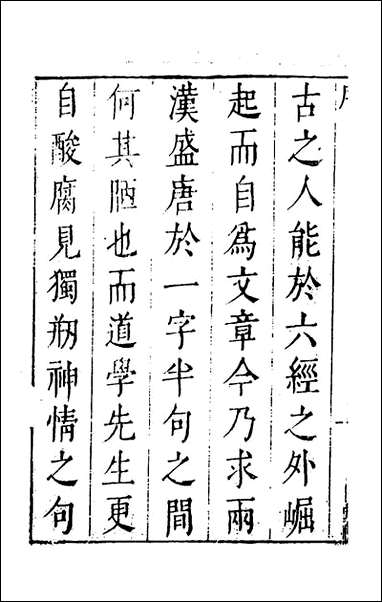 古之人能於六經之外崛
起而自爲文章今乃求兩
漢盛唐於一字半句之間
何其陋也而道學先生更
自酸腐見獨刱神情之句